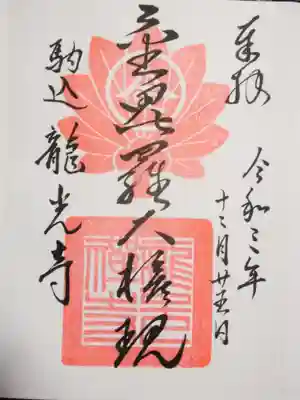 奉拝
令和三年
十二月廿五日
金毘羅大権現
駒込 龍光寺